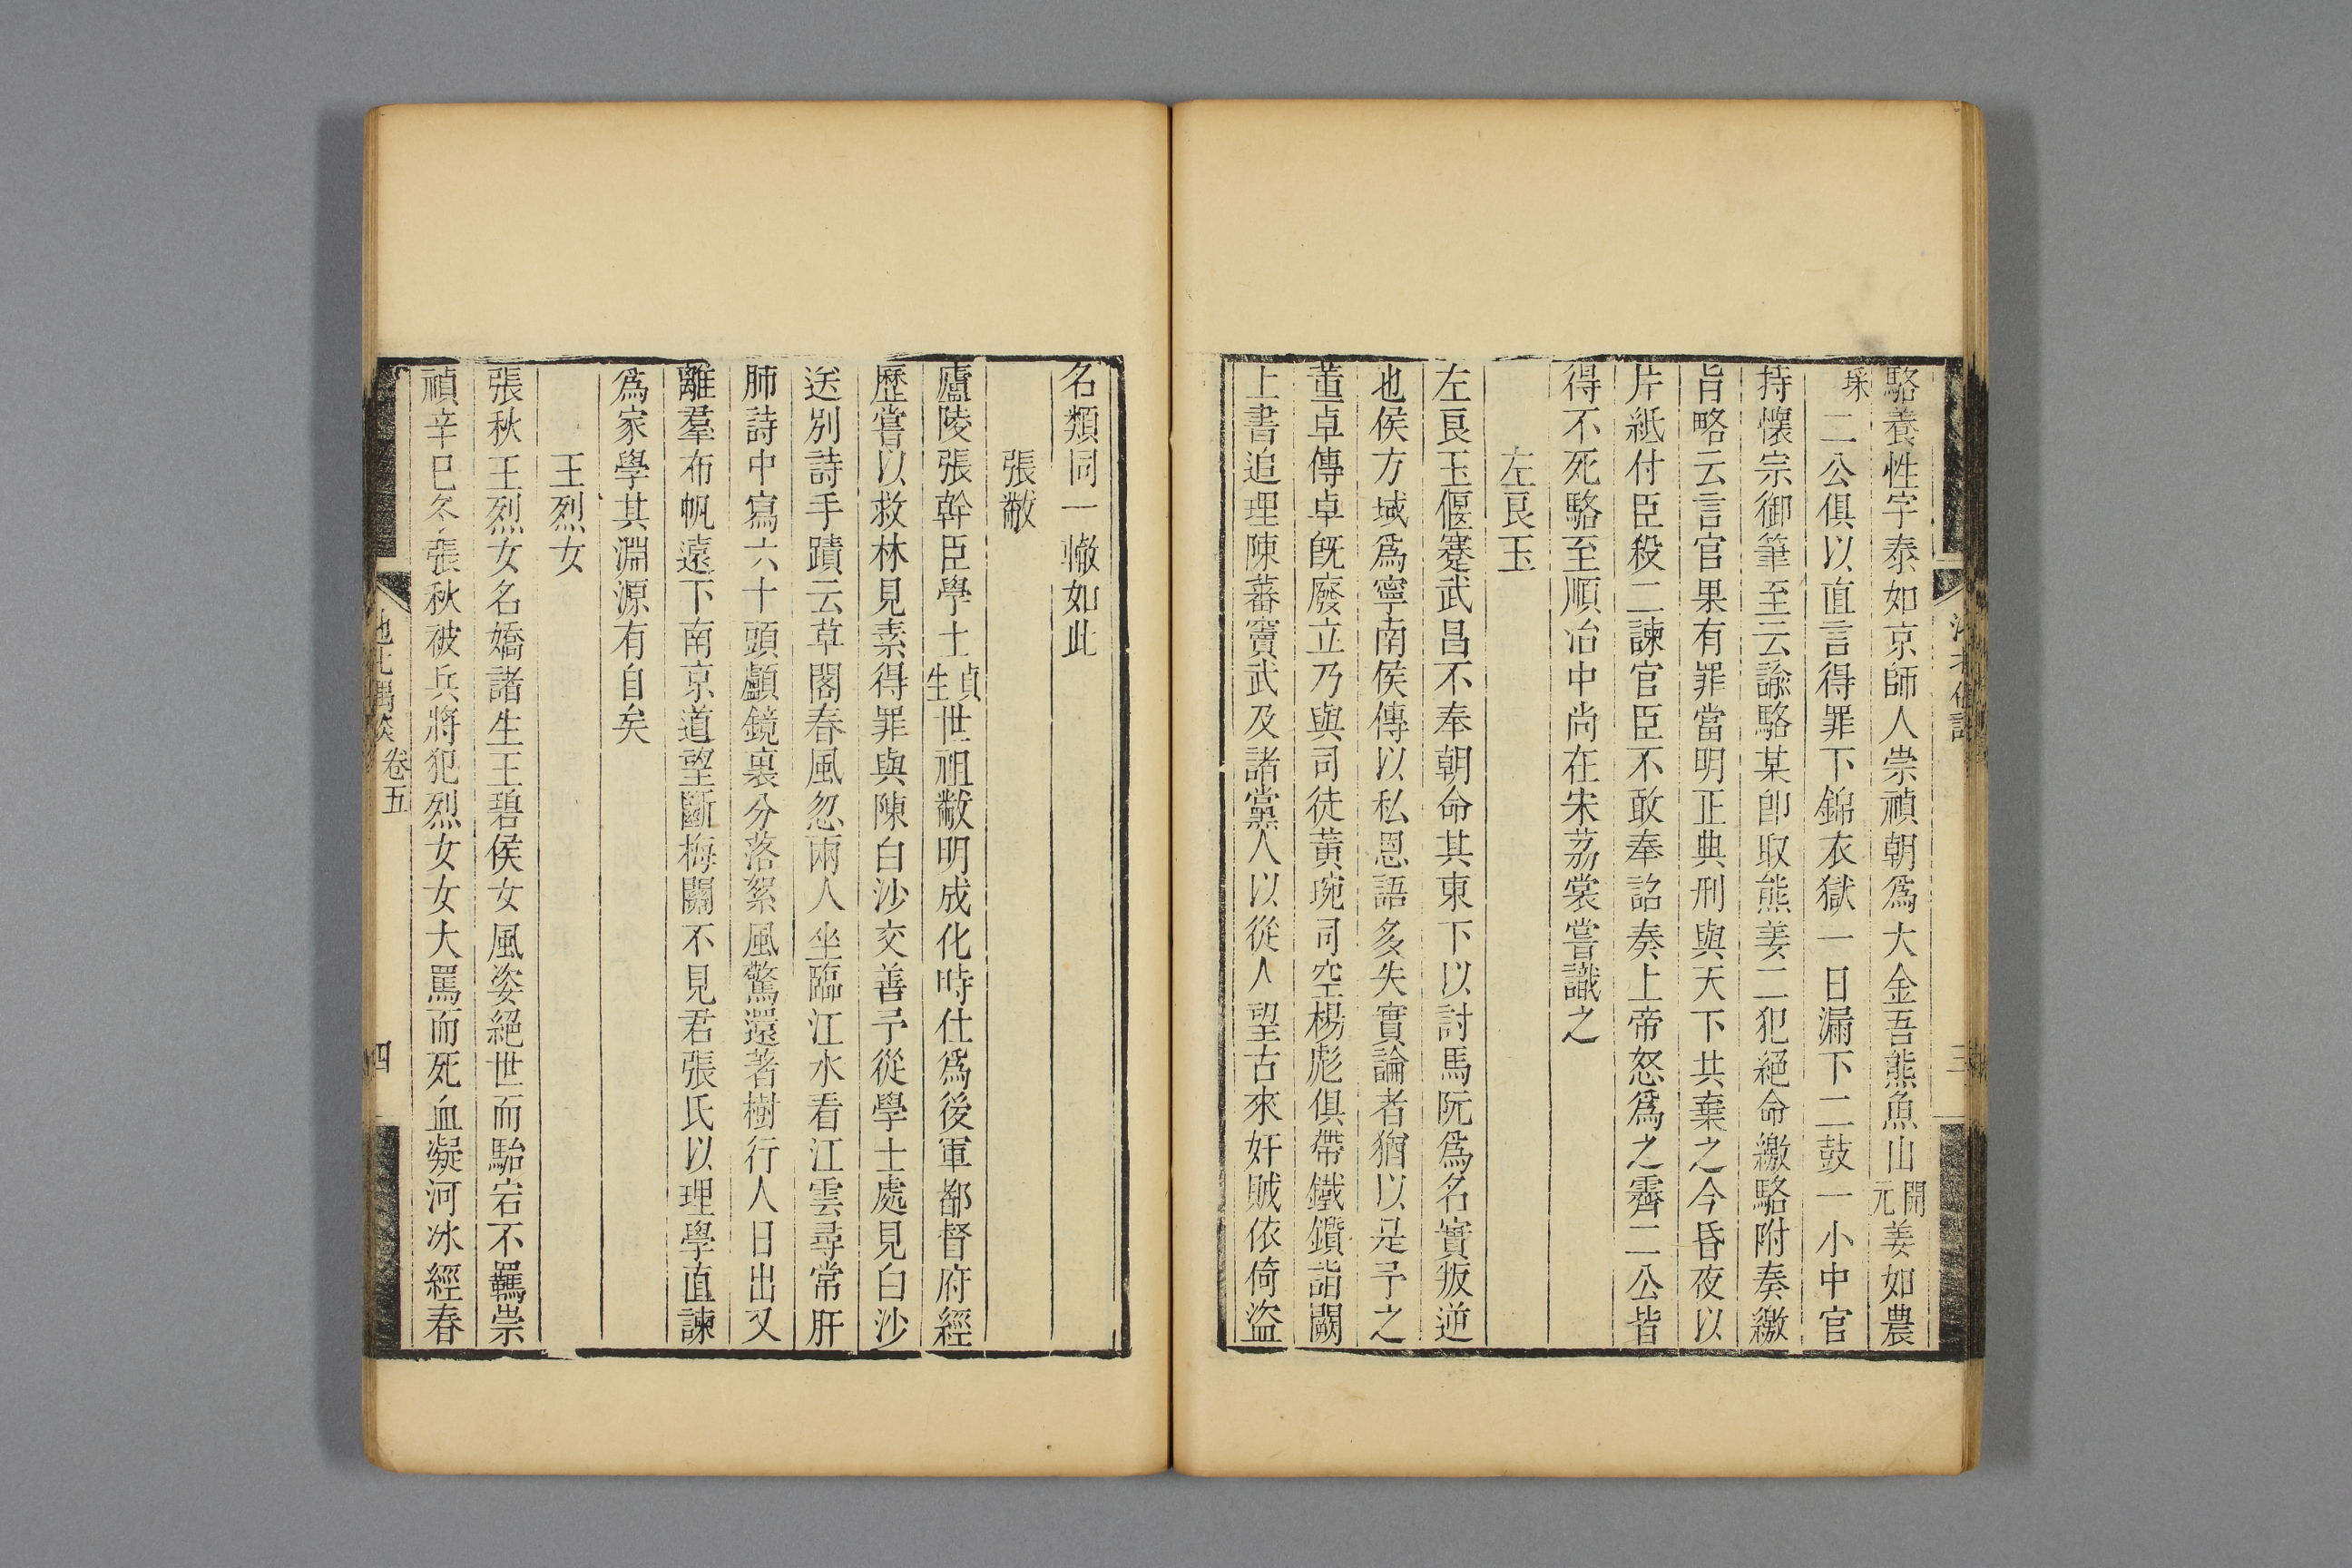 駱養性字泰如京師人崇禎朝爲大金吾熊魚山開元姜如農
埰二公俱以直言得罪下錦衣獄一日漏下二鼓一小中官
持懷宗御筆至云諭駱某卽取熊姜二犯絕命繳駱附奏繳
旨略云言官果有罪當明正典刑與天下共棄之今昏夜以
片紙付臣殺二諫官臣不敢奉詔奏上帝怒爲之霽二公皆
得不死駱至順冶中尚在宋荔裳嘗識之
左良玉
左良玉偃蹇武昌不奉朝命其東下以討馬阮爲名實叛逆
也侯方域爲寧南侯傳以私恩語多失實論者猶以是予之
董卓傳卓旣廢立乃與司徒黃琬司空楊彪俱帶鐵鑕詣闕
上書追理陳蕃竇武及諸黨人以從人望古來奸賊依倚盜
名類同一轍如此
張黻
廬陵張幹臣學士貞生世祖黻明成化時仕爲後軍都督府經
歷嘗以救林見素得罪與陳白沙交善予從學士處見白沙
送別詩手蹟云草閣春風忽兩人坐臨江水看江雲尋常肝
肺詩中寫六十頭顱鏡裏分落絮風驚還著樹行人日出又
離羣布帆遠下南京道望斷梅關不見君張氏以理學直諫
爲家學其淵源有自矣
王烈女
張秋王烈女名嬌諸生王碧侯女風姿絕世而駘宕不羈崇
禎辛巳冬張秋破兵將犯烈女女大罵而死血凝河冰經春
池北偶談 卷五 四